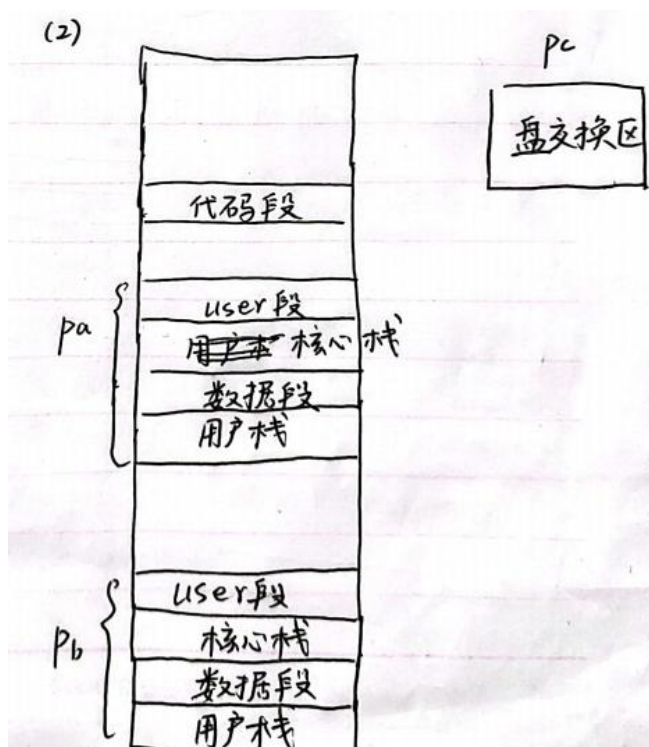 (2)
pc
盘交换区
代码段
pa
user段
核心栈
数据段
用户栈
pb
user段
核心栈
数据段
用户栈